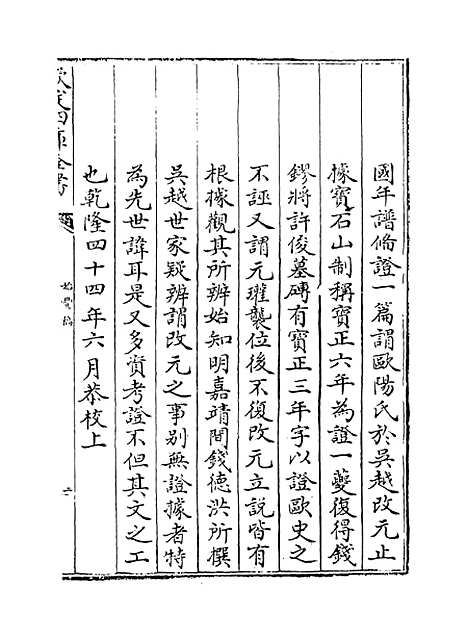 國年譜備證一篇謂歐陽氏於吳越改元止
據寶石山制稱寶正六年為證一夔復得錢
鏐將許俊墓磚有寶正三年字以證歐史之
不誣又謂元瓘襲位後不復改元立說皆有
根據觀其所辨始知明嘉靖間錢德洪所撰
吳越世家疑辨謂改元之事别無證據者特
為先世諱耳是又多資考證不但其文之工
也乾隆四十四年六月恭校上
欽定四庫全書
始豐稿
二